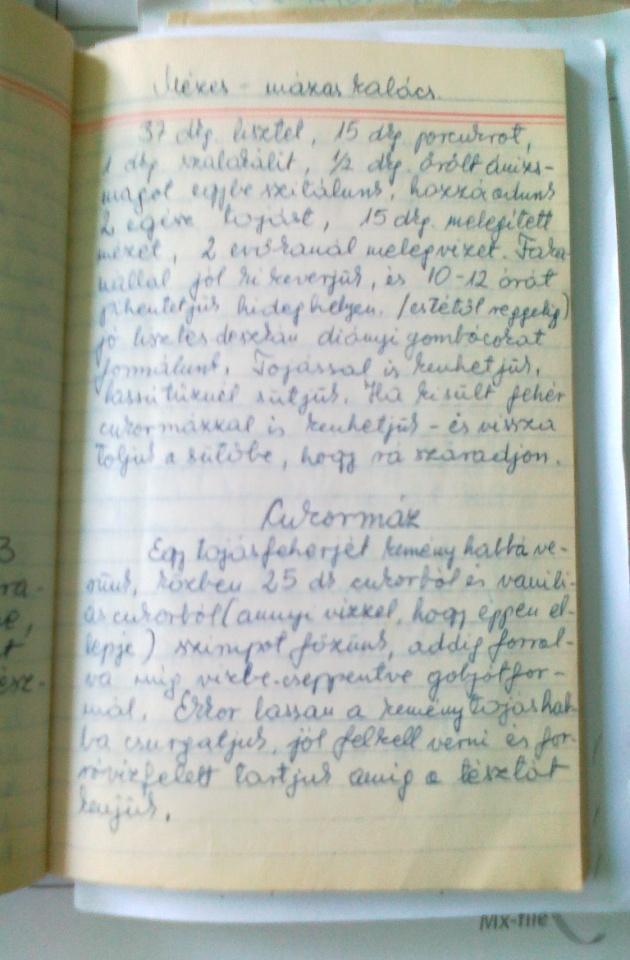 Mézes - mázas kalács.
37 dkg. lisztet, 15 dkg porcukrot,
1 dkg szalakálit, 1/2 dkg. őrölt ánizs-
magot egybe szitálunk, hozzáadunk
2 egész tojást, 15 dkg. melegített
mézet, 2 evőkanál melegvizet. Faka-
nállal jól kikeverjük, és 10-12 órát
pihentetjük hideg helyen. /estétől reggelig)
jó lisztes deszkán diónyi gombócokat
formálunk. Tojással is kenhetjük.
lassú tűznél sütjük. Ha kisült fehér
cukormázzal is kenhetjük - és vissza
toljuk a sütőbe, hogy rá száradjon.
Cukormáz
Egy tojásfehérjét kemény habbá ve-
rünk, közben 25 dk cukorból és vaníli-
ás cukorból (annyi vízzel, hogy éppen el-
lepje) szirupot főzünk, addig forral-
va míg vízbe cseppentve golyót for-
mál. Ekkor lassan a kemény tojáshab-
ba csurgatjuk, jól felkell verni és for-
róvíz felett tartjuk amíg a tésztát
kenjük.
3
ra-
t
Mx-file